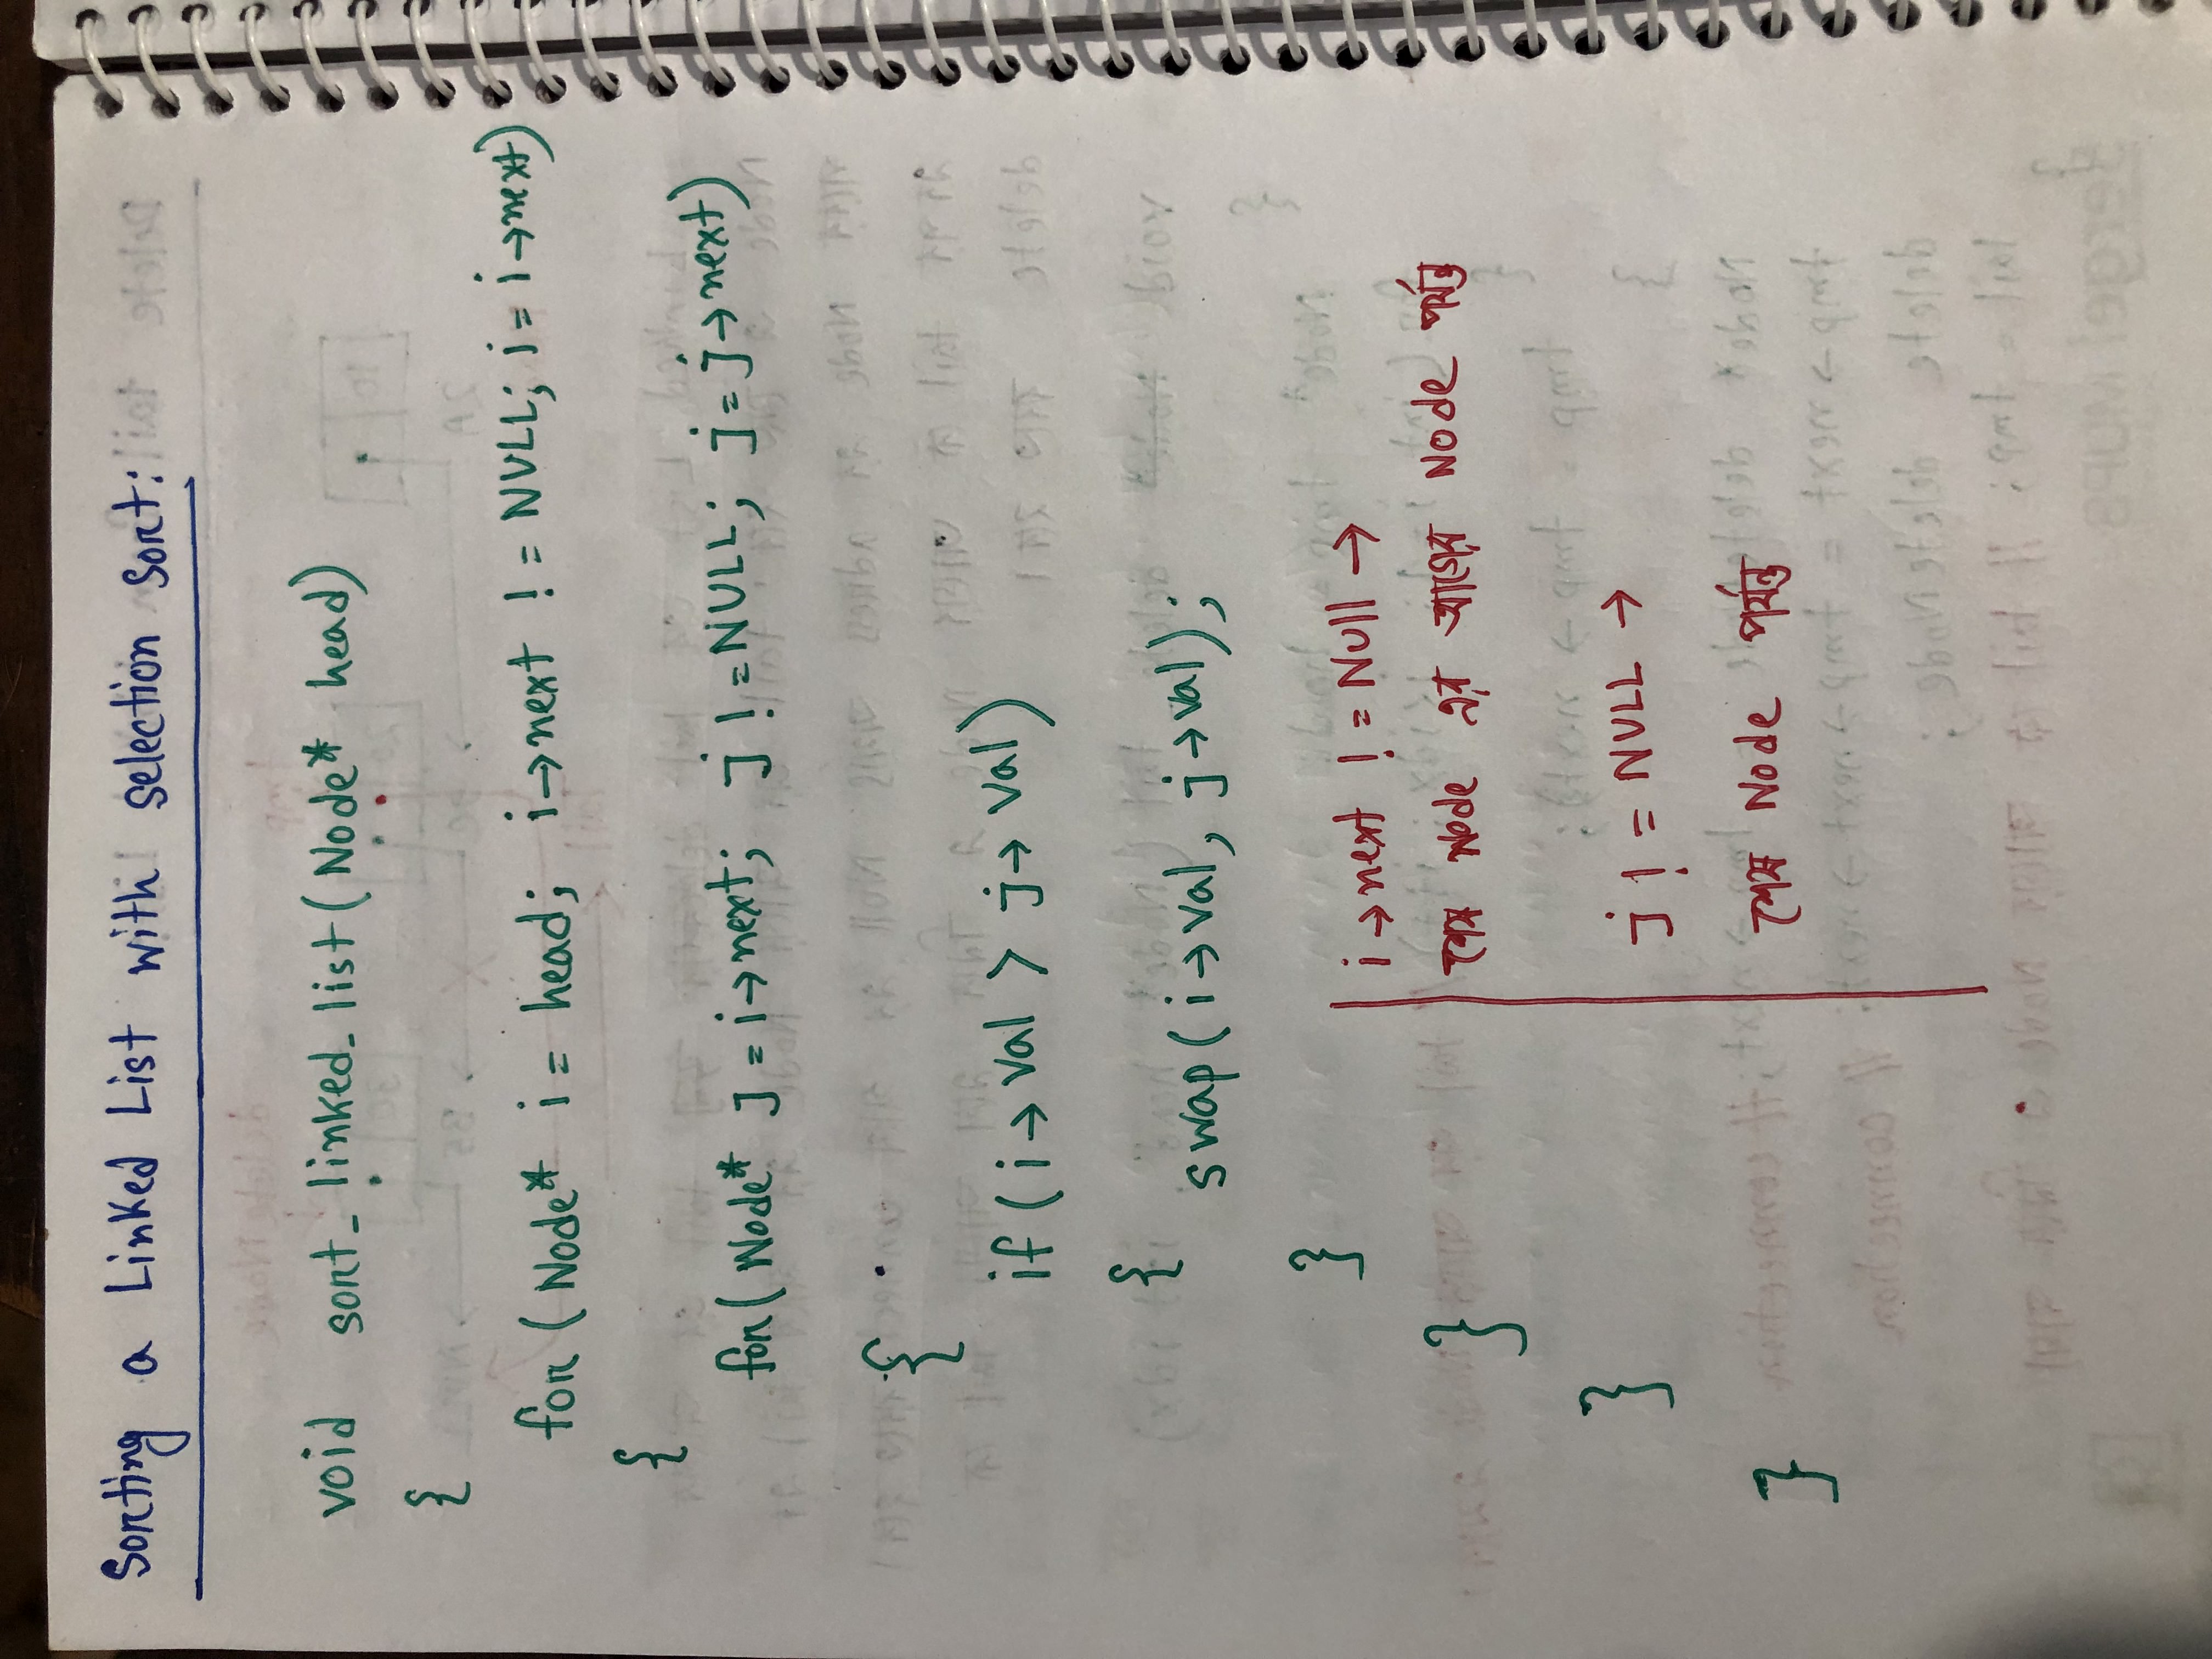 Sorting a Linked List with selection sort:
void sort_linked_list(Node* head)
{
for (Node* i = head; i→next != NULL; i = i→next)
{
for(Node* j = i→next; j != NULL; j = j→next)
{
if (i→val > j→val)
{
swap(i→val, j→val);
}
i→next != Null →
শেষ Node এর আগের Node পর্যন্ত
}
j != NULL →
}
শেষ Node পর্যন্ত
}